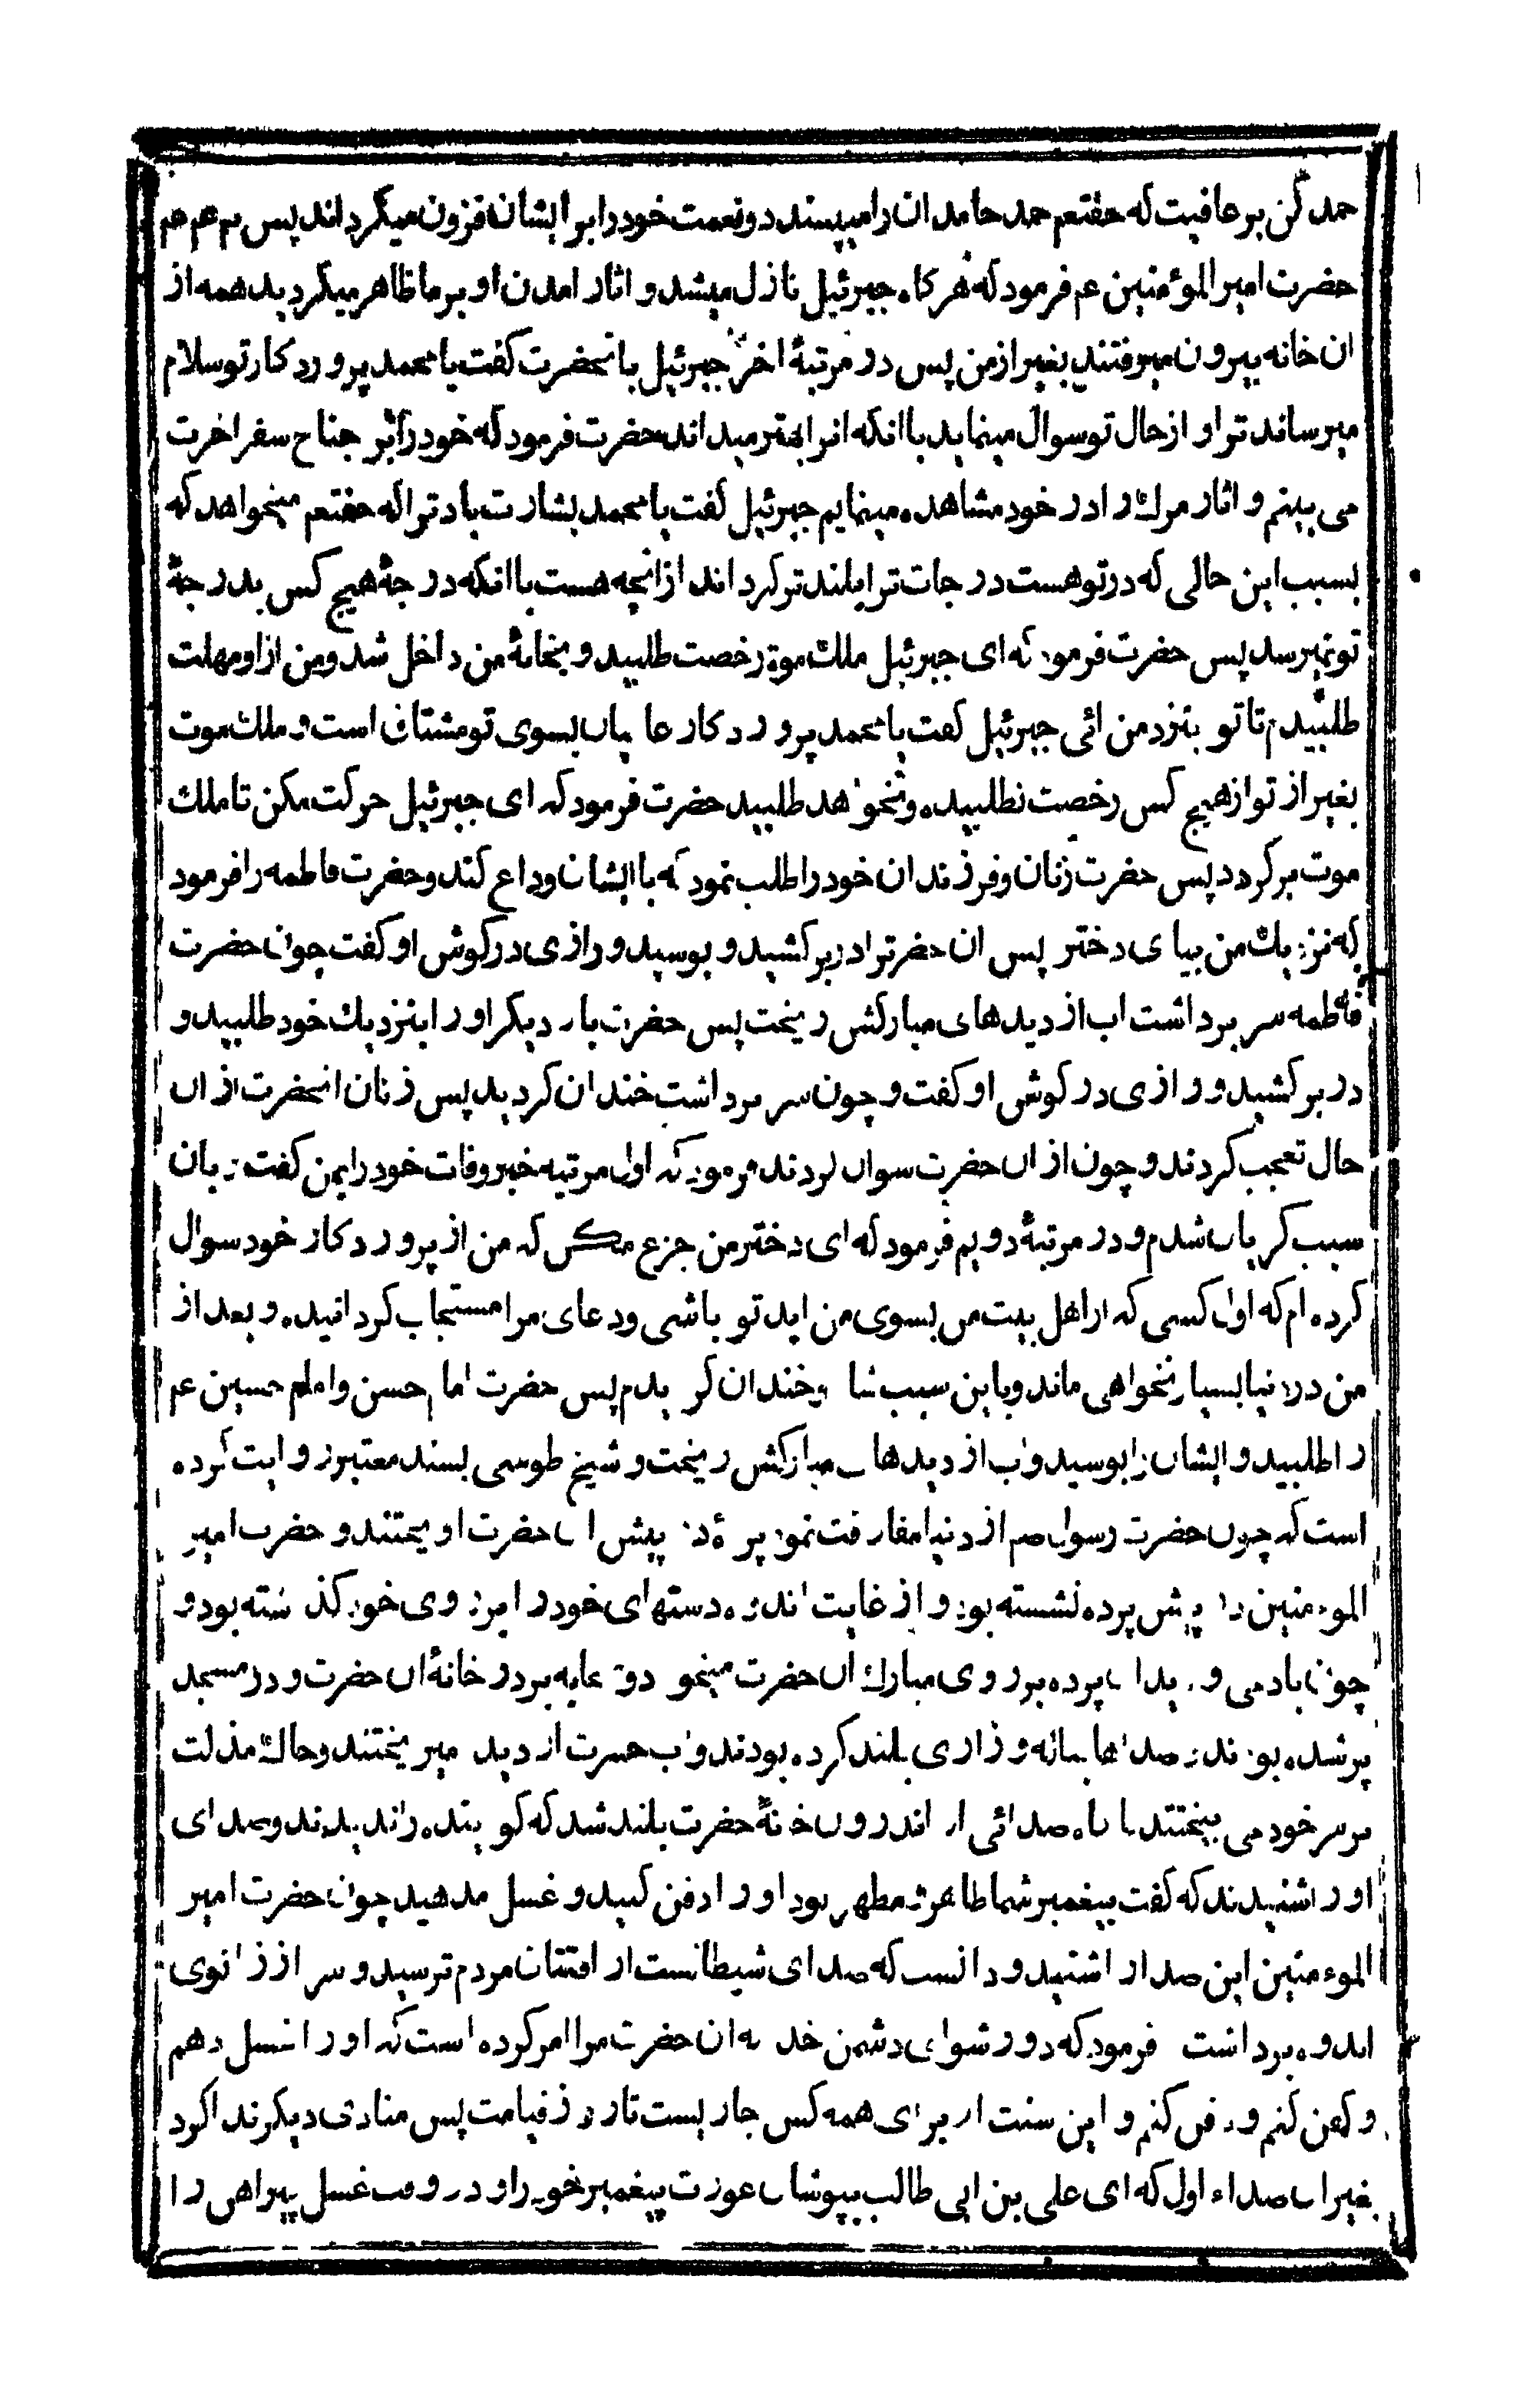 حمد کن بر عافیت که حقتعم حمد حامدان را میپسندد و نعمت خود را بر ایشان فزون میگرداند پس
حضرت امیر المؤمنین عم فرمود که هر کاه جبرئیل نازل میشد و اثار امدن او بر ما ظاهر میکردید همه از
ان خانه بیرون میرفتند بغیر از من پس در مرتبۀ اخر جبرئیل بانحضرت کفت یا محمد پروردکار تو سلام
میرساند ترا و از حال تو سوال مینماید با انکه انرا بهتر میداند حضرت فرمود که خود را بر جناح سفر اخرت
می بینم و اثار مرك را در خود مشاهده مینمایم جبرئیل کفت یا محمد بشارت باد ترا که حقتعم میخواهد که
بسبب این حالی که در تو هست درجات ترا بلند تر کرداند از انچه هست با انکه درجۀ هیچ کس بدرجۀ
تو نمیرسد پس حضرت فرمود که ای جبرئیل ملك موت رخصت طلبید و بخانۀ من داخل شد و من از او مهلت
طلبیدم تا تو بنزد من ائی جبرئیل کفت یا محمد پروردکار عالمیان بسوی تو مشتاق است و ملك موت
بغیر از تو از هیچ کس رخصت نطلبیده و نخواهد طلبید حضرت فرمود که ای جبرئیل حرکت مکن تا ملك
موت برکردد پس حضرت زنان و فرزندان خود را طلب نمود که با ایشان وداع کند و حضرت فاطمه را فرمود
که نزدیك من بیا ی دختر پس ان حضرت را در بر کشید و بوسید و رازی در کوش او کفت چون حضرت
فاطمه سر برداشت اب از دیدهای مبارکش ریخت پس حضرت بار دیکر او را بنزدیك خود طلبید و
در بر کشید و رازی در کوش او کفت و چون سر برداشت خندان کردید پس زنان انحضرت از ان
حال تعجب کردند و چون از ان حضرت سوال کردند فرمود که اول مرتبه خبر وفات خود را بمن کفت بان
سبب کریان شدم و در مرتبۀ دویم فرمود که ای دختر من جزع مکن که من از پروردکار خود سوال
کرده ام که اول کسی که از اهل بیت من بسوی من اید تو باشی و دعای مرا مستجاب کردانیده و بعد از
من در دنیا بسیار نخواهی ماند و باین سبب شاد و خندان کردیدم پس حضرت امام حسن و امام حسین عم
را طلبید و ایشان را بوسید و اب از دیدهای مبارکش ریخت و شیخ طوسی بسند معتبر روایت کرده
است که چون حضرت رسول صم از دنیا مفارقت نمود پرده در پیش ان حضرت اویختند و حضرت امیر
الموءمنین در پیش پرده نشسته بود و از غایت اندوه دستهای خود را بر روی خود کذاشته بود و
چون باد می وزید ان پرده بر روی مبارك ان حضرت میخورد بر در خانۀ ان حضرت و در مسجد
پر شده بودند و صداها بناله و زاری بلند کرده بودند و اب حسرت از دیده میریختند و خاك مذلت
بر سر خود می بیختند ناکاه صدائی از اندرون خانۀ حضرت بلند شد که کوینده را ندیدند و صدای
او را شنیدند که کفت پیغمبر شما طاهر و مطهر بود او را دفن کنید و غسل مدهید چون حضرت امیر
الموءمنین این صدا را شنید و دانست که صدای شیطانست از افتتان مردم ترسید و سر از زانوی
اندوه برداشت فرمود که دور شو ای دشمن خدا که ان حضرت مرا امر کرده است که او را غسل دهم
و کفن کنم و دفن کنم و این سنت از برای همه کس جاریست تا روز قیامت پس منادی دیکر ندا کرد
بغیر ان صداء اول که ای علی بن ابی طالب بپوشان عورت پیغمبر خود را و در وقت غسل پیراهن را